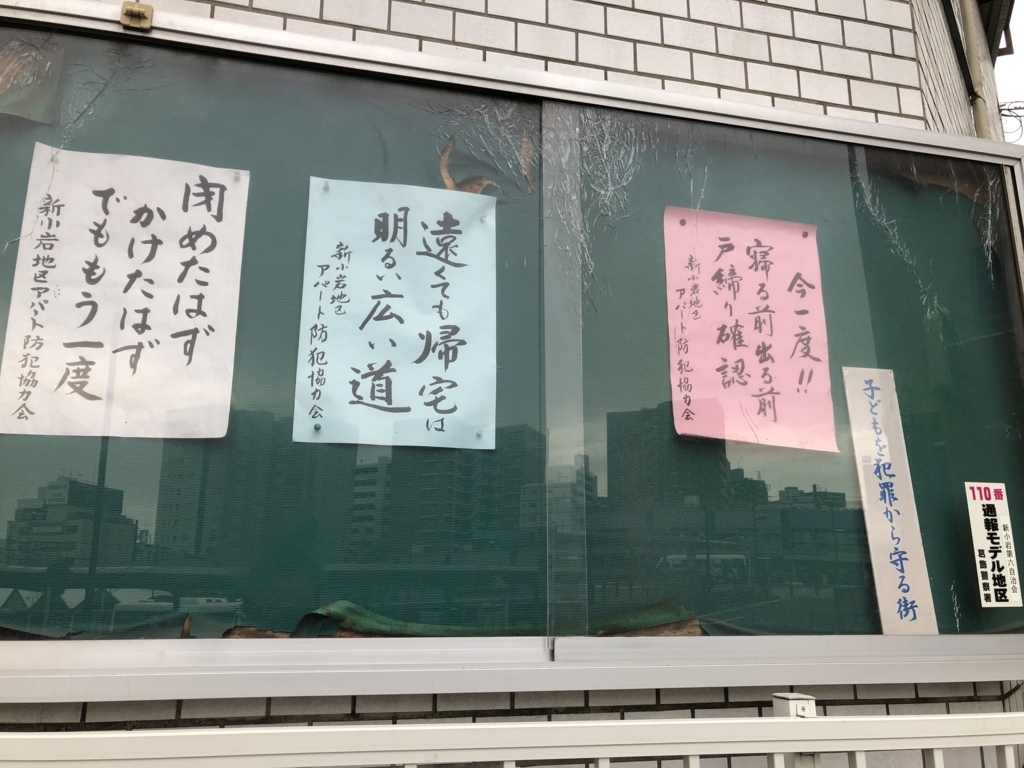 閉めたはず
かけたはず
でももう一度
新小岩地区アパート防犯協力会
遠くても帰宅は
明るい広い道
新小岩地区
アパート防犯協力会
今一度!!
寝る前出る前
戸締り確認
新小岩地区
アパート防犯協力会
子どもを犯罪から守る街
110番
通報モデル地区
新小岩第六自治会
葛飾警察署